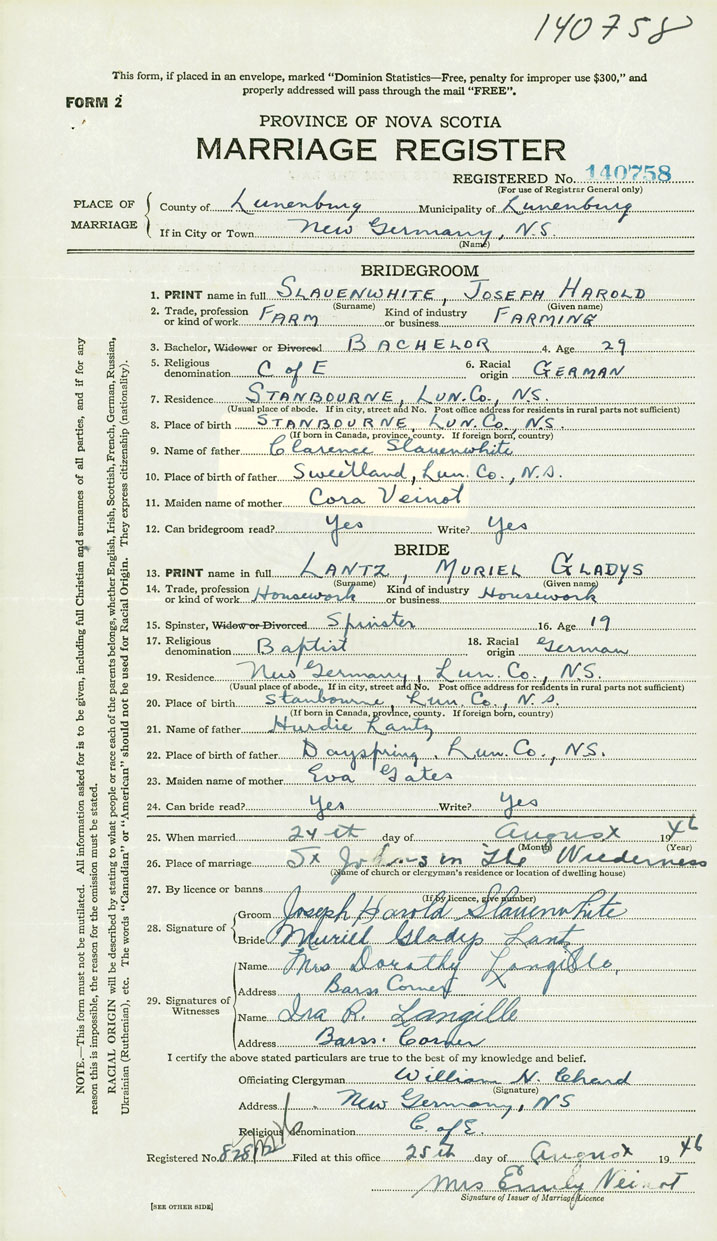 140758
This form, if placed in an envelope, marked "Dominion Statistics—Free, penalty for improper use $300," and
properly addressed will pass through the mail "FREE".
FORM 2
PROVINCE OF NOVA SCOTIA
MARRIAGE REGISTER
REGISTERED No. 140758
(For use of Registrar General only)
PLACE OF MARRIAGE
County of Lunenburg Municipality of Lunenburg
If in City or Town New Germany, N.S.
(Name)
BRIDEGROOM
1. PRINT name in full SLAUENWHITE, JOSEPH HAROLD
(Surname) (Given name)
2. Trade, profession or kind of work FARM Kind of industry or business FARMING
3. Bachelor, Widower or Divorced BACHELOR 4. Age 29
5. Religious denomination C of E 6. Racial origin GERMAN
7. Residence STANBOURNE, LUN. CO., N.S.
(Usual place of abode. If in city, street and No. Post office address for residents in rural parts not sufficient)
8. Place of birth STANBOURNE, LUN. CO., N.S.
(If born in Canada, province, county. If foreign born, country)
9. Name of father Clarence Slauenwhite
10. Place of birth of father Sweetland, Lun. Co., N.S.
11. Maiden name of mother Cora Veinot
12. Can bridegroom read? Yes Write? Yes
BRIDE
13. PRINT name in full LANTZ, MURIEL GLADYS
(Surname) (Given name)
14. Trade, profession or kind of work Housework Kind of industry or business Housework
15. Spinster, Widow or Divorced Spinster 16. Age 19
17. Religious denomination Baptist 18. Racial origin German
19. Residence New Germany, Lun. Co., N.S.
(Usual place of abode. If in city, street and No. Post office address for residents in rural parts not sufficient)
20. Place of birth Stanbourne, Lun. Co., N.S.
(If born in Canada, province, county. If foreign born, country)
21. Name of father Hurdie Lantz
22. Place of birth of father Dayspring, Lun. Co., N.S.
23. Maiden name of mother Eva Gates
24. Can bride read? Yes Write? Yes
25. When married 24th day of August 1946
(Month) (Year)
26. Place of marriage St Johns in The Wilderness
(Name of church or clergyman's residence or location of dwelling house)
27. By licence or banns
(If by licence, give number)
28. Signature of
Groom Joseph Harold Slauenwhite
Bride Muriel Gladys Lantz
29. Signatures of Witnesses
Name Mrs Dorathy Langille,
Address Barss Corner
Name Ira R. Langille
Address Barss. Corner
I certify the above stated particulars are true to the best of my knowledge and belief.
Officiating Clergyman William N. Chard
(Signature)
Address New Germany, NS
Religious denomination C. of E.
Registered No. Filed at this office 25th day of August 1946
Mrs Emily Veinot
Signature of Issuer of Marriage Licence
[SEE OTHER SIDE]
NOTE.—This form must not be mutilated. All information asked for is to be given, including full Christian and surnames of all parties, and if for any
reason this is impossible, the reason for the omission must be stated.
RACIAL ORIGIN will be described by stating to what people or race each of the parents belongs, whether English, Irish, Scottish, French, German, Russian,
Ukrainian (Ruthenian), etc. The words "Canadian" or "American" should not be used for Racial Origin. They express citizenship (nationality).